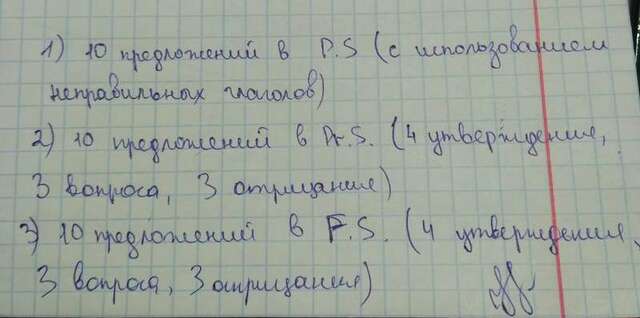 1) 10 предложений в P.S (с использованием
неправильных глаголов)
2) 10 предложений в Pr.S. (4 утверждение,
3 вопроса, 3 отрицание)
3) 10 предложений в F.S. (4 утверждение,
3 вопроса, 3 отрицание)